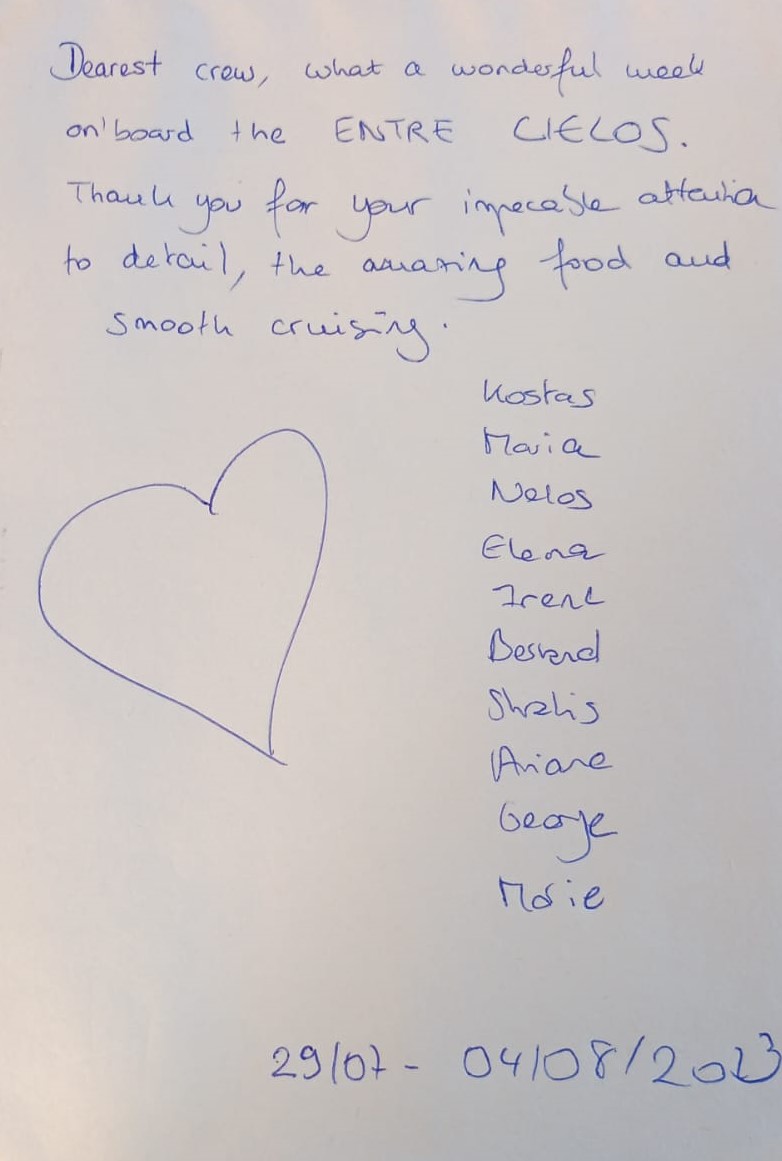 Dearest crew, what a wonderful week
on'board the ENTRE CIELOS.
Thank you for your impecable attention
to detail, the amazing food and
smooth cruising.
Kostas
Maria
Nelos
Elena
Irene
Stratis
Ariane
George
Marie
29/07 - 04/08/2023